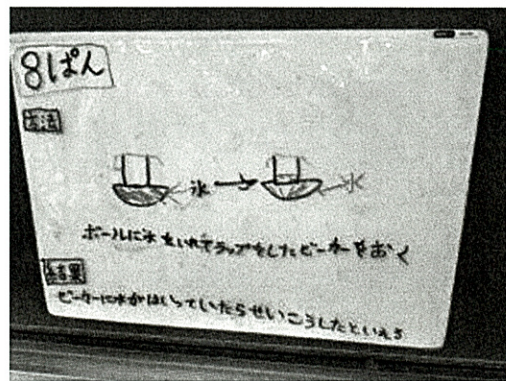 8ぱん
方法
氷 → 水
ボールに水をいれてラップをしたビーカーをおく
結果
ビーカーに水がはいっていたらせいこうしたといえる